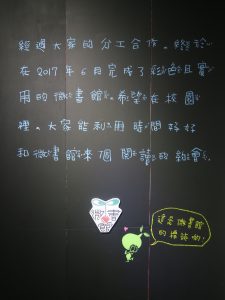 經過大家的分工合作。終於
在2017年6月完成了彩色且實
用的微書館。希望在校園
裡。大家能利用時間好好
和微書館來個閱讀的約會。
微書館
這是微書館
的標誌喲!